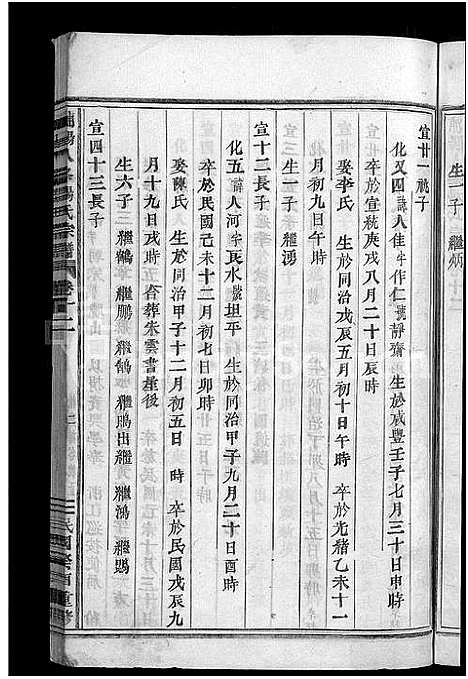 生一子 繼炳
宣廿一祧子
化又四諱人佳字作仁號靜齋 生於咸豐壬子七月三十日申時
卒於宣統庚戌八月二十日辰時
娶李氏 生於同治戊辰五月初十日午時 卒於光緒乙未十一
月初九日寅時
生一子 繼湧
宣十二長子
化五諱人河字長水號坦平 生於同治甲子九月二十日酉時
卒於民國己未十二月初七日卯時
娶陳氏 生於同治甲子十二月初五日 時 卒於民國戊辰九
月十九日戌時 合葬朱雲書屋後
生六子 繼鶴 繼鵬 繼鵠 繼鵰出繼 繼鴻 繼鶚
宣四十三長子
楊氏宗譜 卷十二
民國癸酉重修